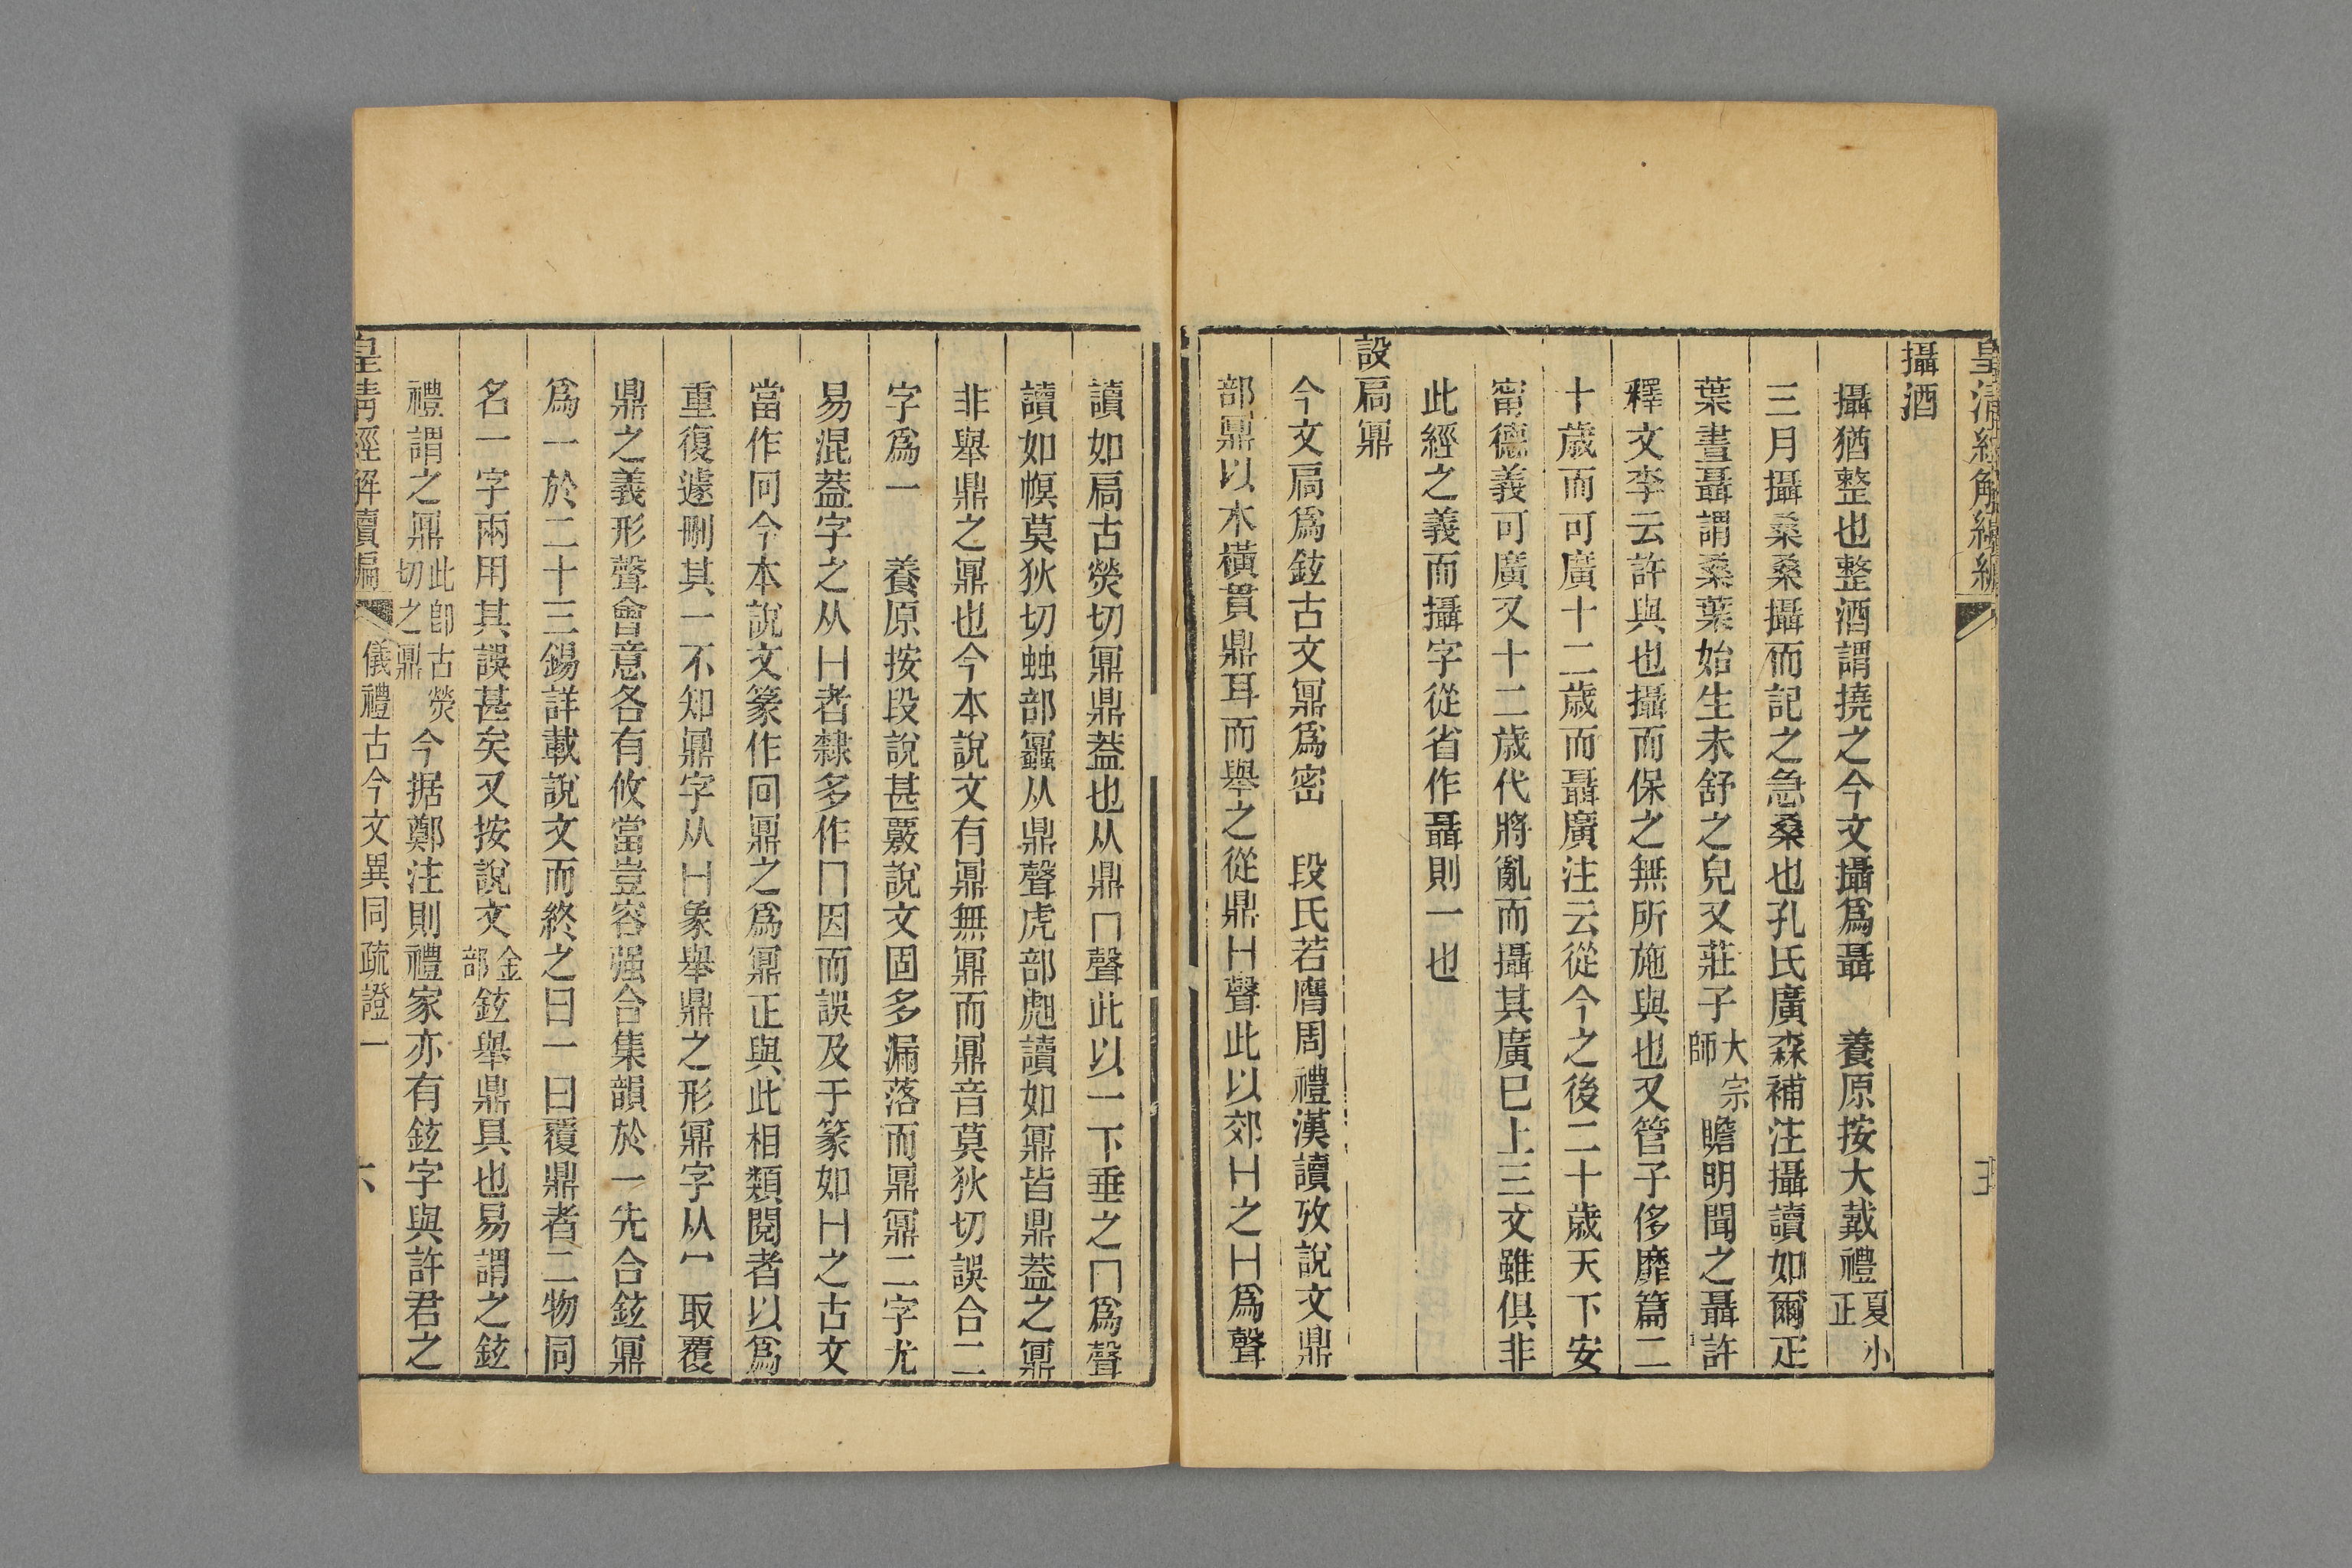 皇清經解續編
攝酒
攝猶整也整酒謂撓之今文攝爲聶　養原按大戴禮夏小正
三月攝桑桑攝而記之急桑也孔氏廣森補注攝讀如爾疋
葉晝聶謂桑葉始生未舒之皃又莊子大宗師瞻明聞之聶許
釋文李云許與也攝而保之無所施與也又管子侈靡篇二
十歲而可廣十二歲而聶廣注云從今之後二十歲天下安
甯德義可廣又十二歲代將亂而攝其廣巳上三文雖俱非
此經之義而攝字從省作聶則一也
設扃鼏
今文扃爲鉉古文鼏爲密　段氏若膺周禮漢讀攷說文鼎
部鼏以木橫貫鼎耳而舉之從鼎H聲此以郊H之H爲聲
讀如扃古熒切鼏鼎葢也从鼎冂聲此以一下垂之冂爲聲
讀如幎莫狄切䖵部䘇从鼏聲虎部䖑讀如鼏皆鼎葢之鼏
非舉鼎之鼏也今本說文有鼏無鼏而鼏音莫狄切誤合二
字爲一　養原按段說甚覈說文固多漏落而鼏鼏二字尤
易混葢字之从H者隸多作冂因而誤及于篆如H之古文
當作冋今本說文篆作回鼏之爲鼏正與此相類閱者以爲
重復遽刪其一不知鼏字从H象舉鼎之形鼏字从冖取覆
鼎之義形聲會意各有攸當豈容强合集韻於一先合鉉鼏
爲一於二十三錫詳載說文而終之曰一曰覆鼎者二物同
名一字兩用其誤甚矣又按說文金部鉉舉鼎具也易謂之鉉
禮謂之鼏此卽古熒切之鼏今据鄭注則禮家亦有鉉字與許君之
皇清經解續編　儀禮古今文異同疏證一　六